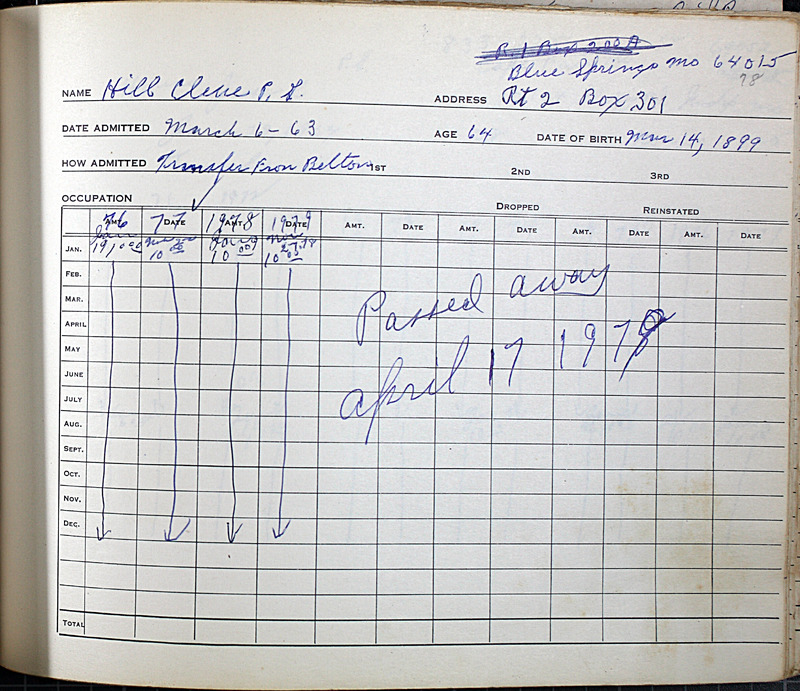 R. 1 Box 200A
Blue Springs Mo 64015
78
NAME Hill Cleve P. G. ADDRESS Rt 2 Box 301
DATE ADMITTED March 6-63 AGE 64 DATE OF BIRTH Mar 14, 1899
HOW ADMITTED Transfer From Belton 1ST 2ND 3RD
OCCUPATION DROPPED REINSTATED
76 77 1978 1979
AMT. DATE AMT. DATE AMT. DATE AMT. DATE AMT. DATE AMT. DATE
JAN. 10 00 10 00 10 00
FEB.
MAR.
Passed away
APRIL
MAY
April 17 1979
JUNE
JULY
AUG.
SEPT.
OCT.
NOV.
DEC.
TOTAL